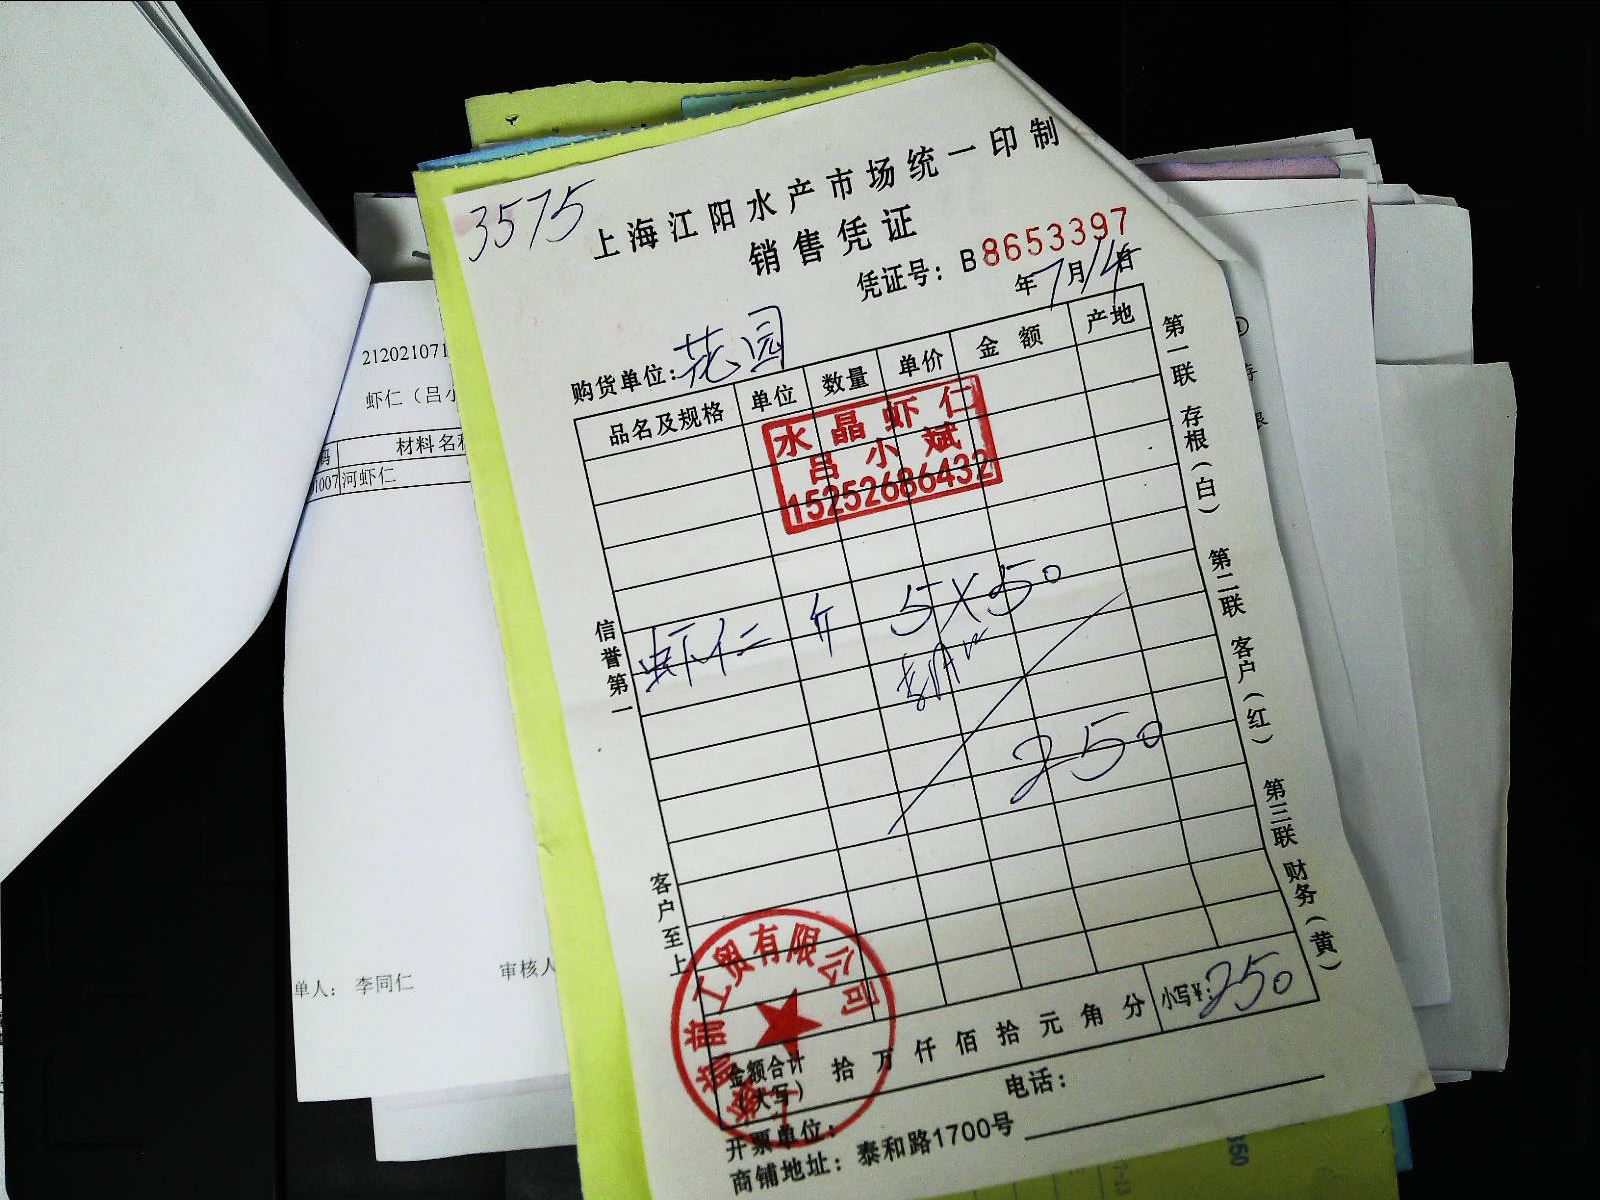 3575
上海江阳水产市场统一印制
销售凭证
凭证号：B8653397
年7月14日
购货单位：花园
品名及规格 单位 数量 单价 金额 产地
水晶虾仁
吕小斌
15252686432
虾仁 斤 5×50
250
信誉第一
客户至上
第一联 存根（白） 第二联 客户（红） 第三联 财务（黄）
工贸有限公司
金额合计（大写） 拾 万 仟 佰 拾 元 角 分 小写¥：250
开票单位： 电话：
商铺地址：泰和路1700号
212021071
虾仁（吕小
材料名称
1007 河虾仁
单人： 李同仁 审核人